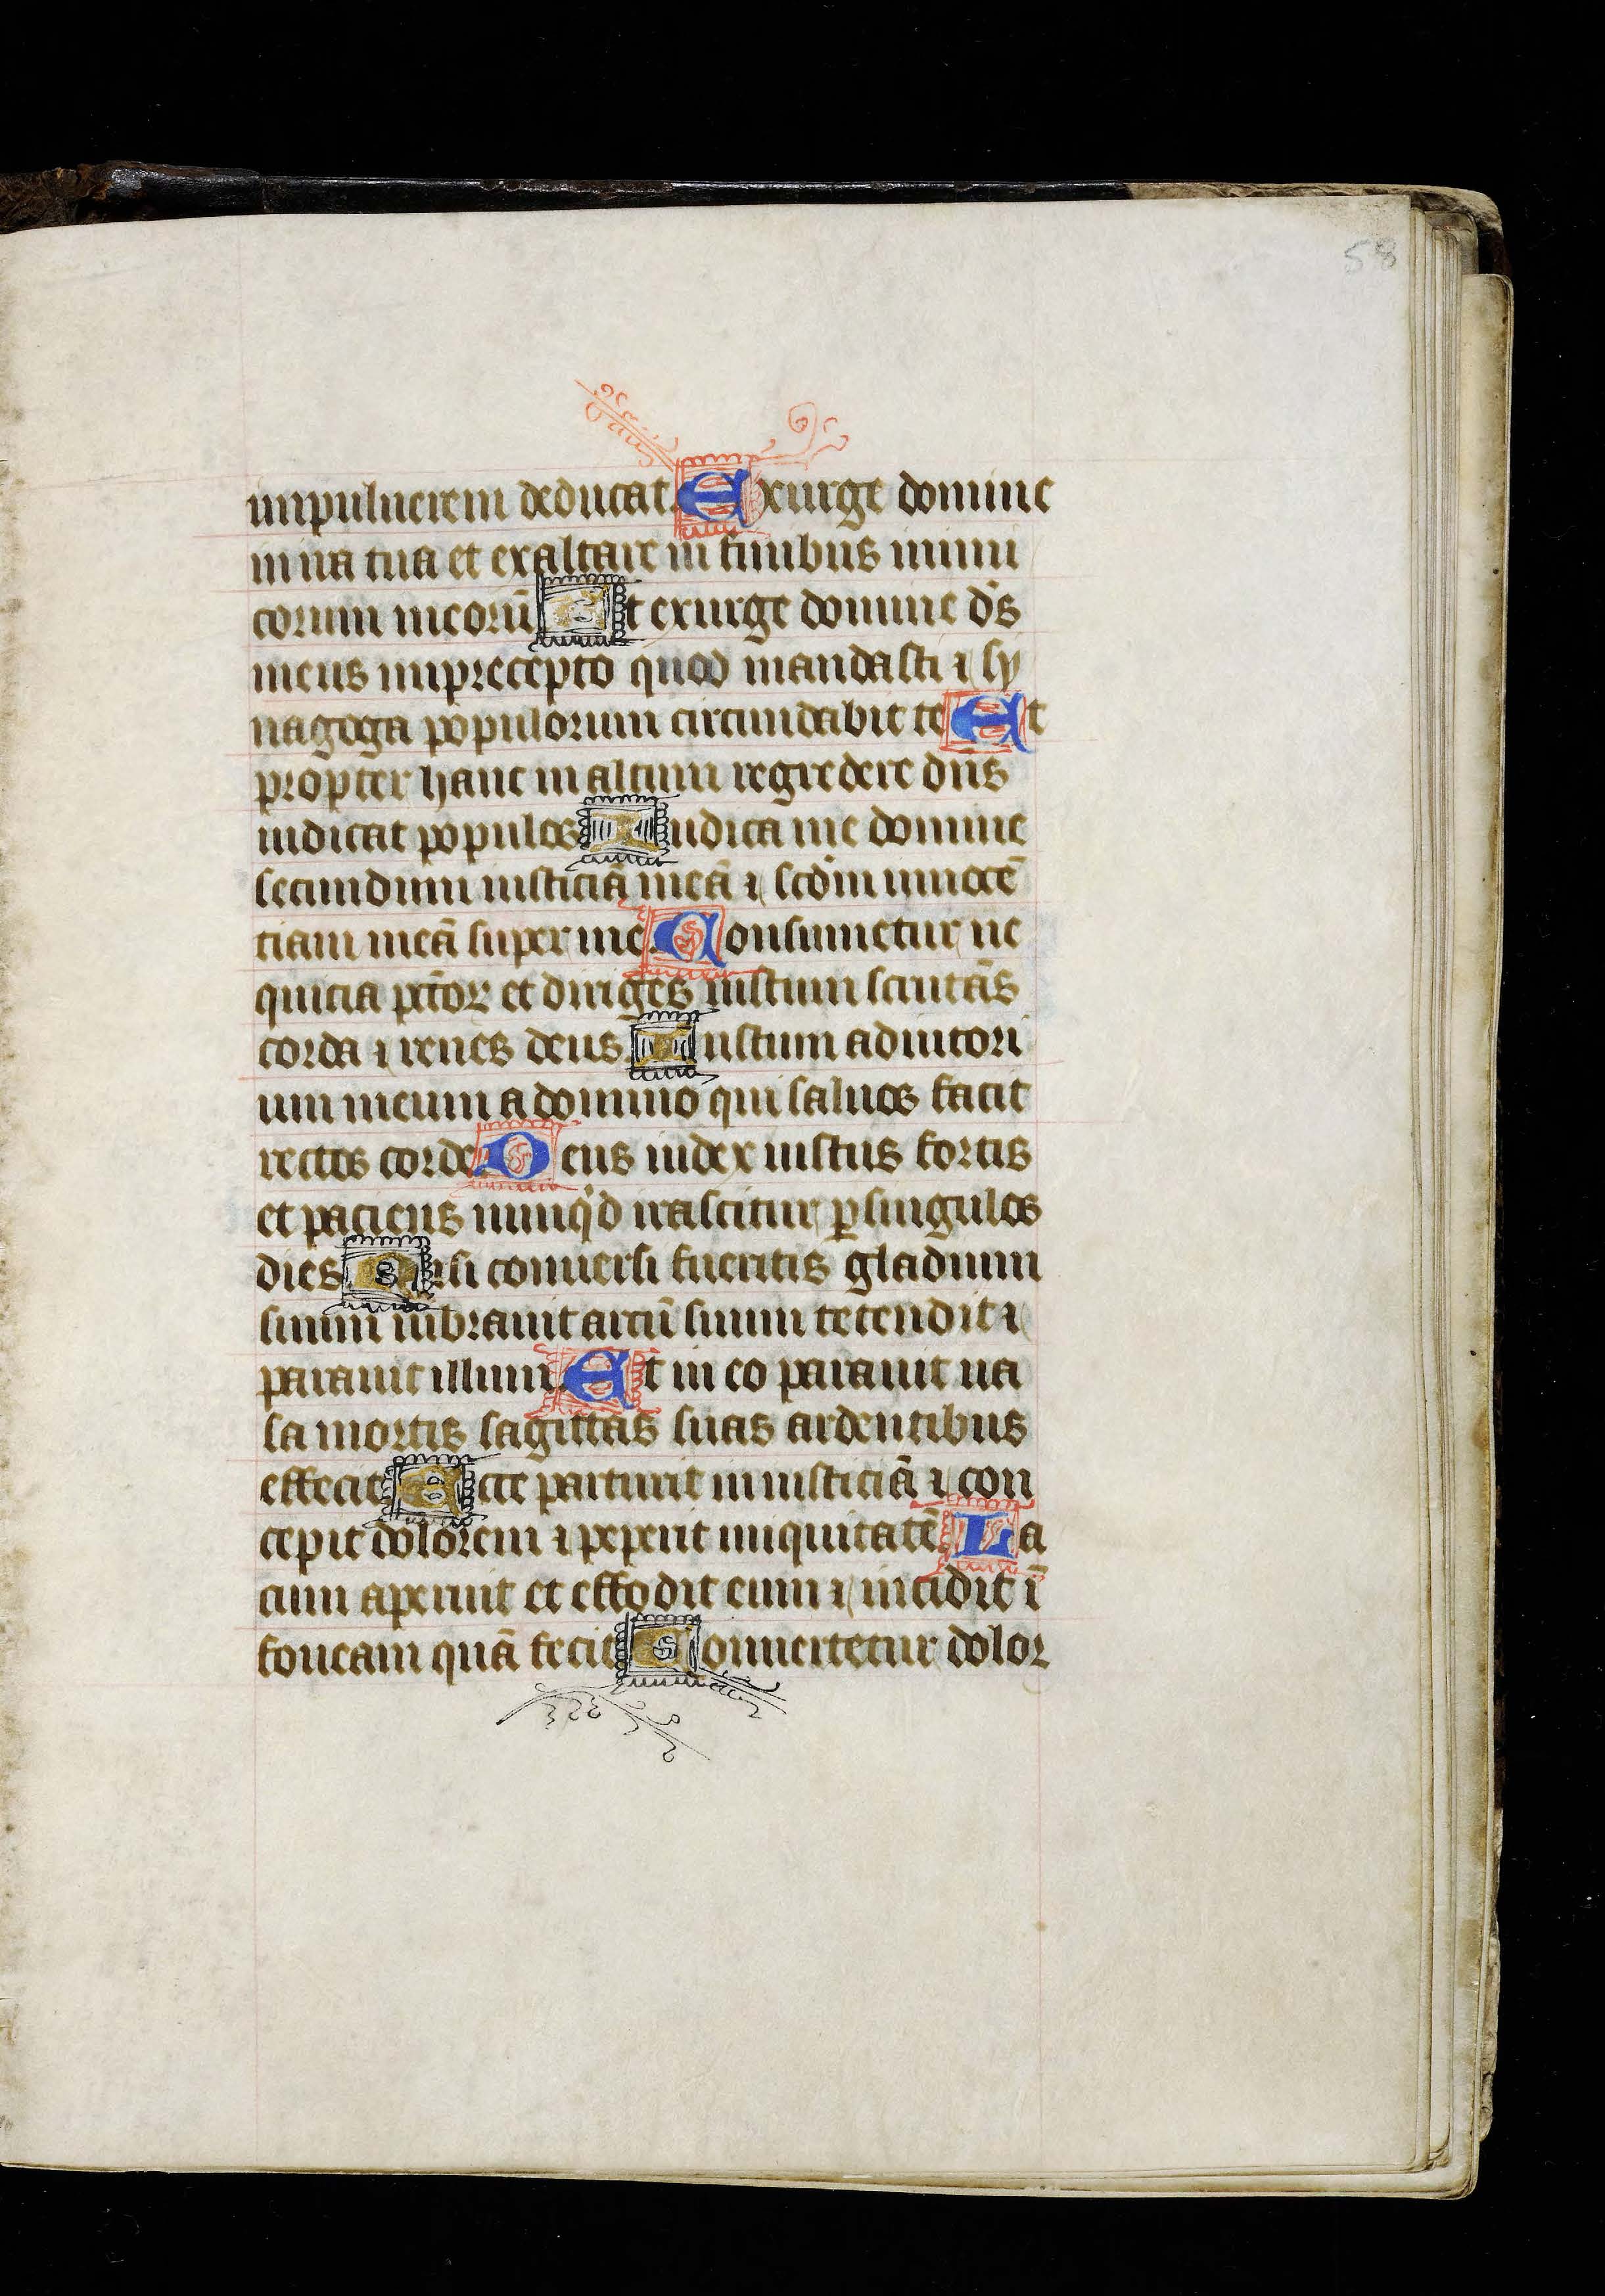 58
inpuluerem deducat Exurge domine
in ira tua et exaltare in finibus inimi
corum meorū Et exurge domine d̄s
meus inprecepto quod mandasti ⁊ sy
nagoga populorum circundabit te Et
propter hanc in altum regredere dn̄s
iudicat populos Iudica me domine
secundum iusticiā meā ⁊ scd̄m innocē
tiam meā super me Consumetur ne
quicia pc̄toꝝ et diriges iustum scrutās
corda ⁊ renes deus Iustum adiutori
um meum a domino qui saluos facit
rectos corde Deus iudex iustus fortis
et paciens nunqͥd irascitur ꝑ singulos
dies Nisi conuersi fueritis gladium
suum uibrauit arcū suum tetendit ⁊
parauit illum Et in eo parauit ua
sa mortis sagittas suas ardentibus
effecit Ecce parturit iniusticiā ⁊ con
cepit dolorem ⁊ peperit iniquitatē La
cum aperuit et effodit eum ⁊ incidit ī
foueam quā fecit Conuertetur dolor